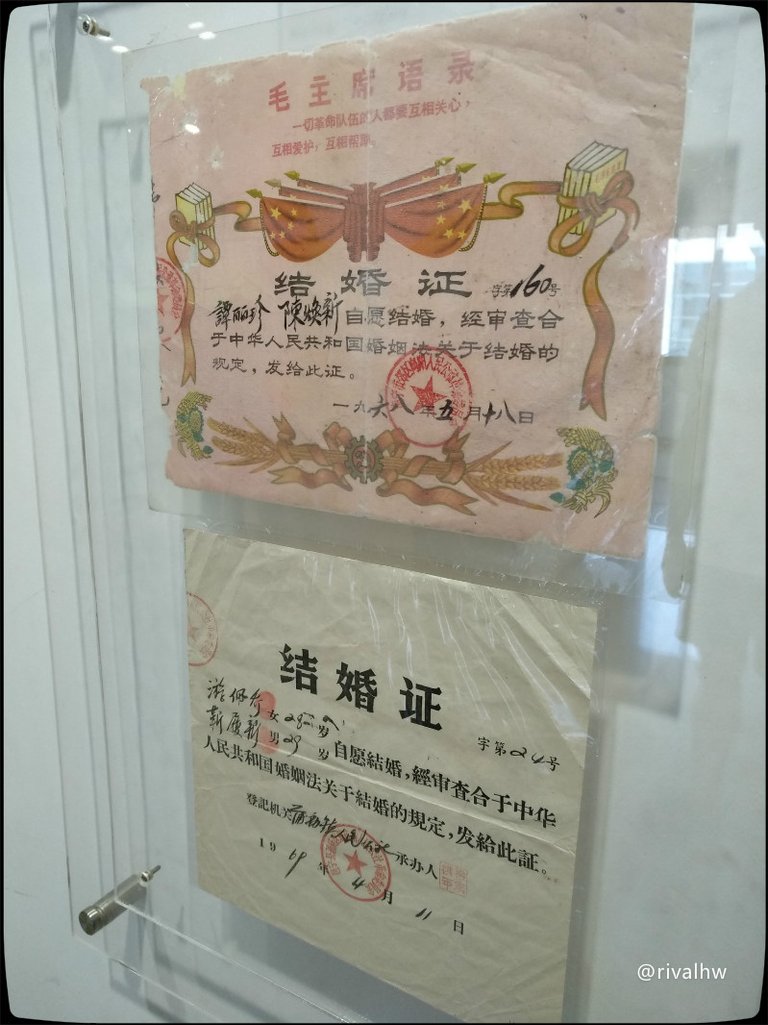 毛主席语录
一切革命队伍的人都要互相关心，
互相爱护，互相帮助。
结婚证
字第160号
譚丽珍 陳焕新自愿结婚，经审查合
于中华人民共和国婚姻法关于结婚的
规定，发给此证。
一九六八年五月十八日
结婚证
字第24号
女28岁
靳履新 男29岁 自愿结婚，經审查合于中华
人民共和国婚姻法关于結婚的規定，发給此証。
登記机关 人民公社 承办人
1969年4月11日
@rivalhw